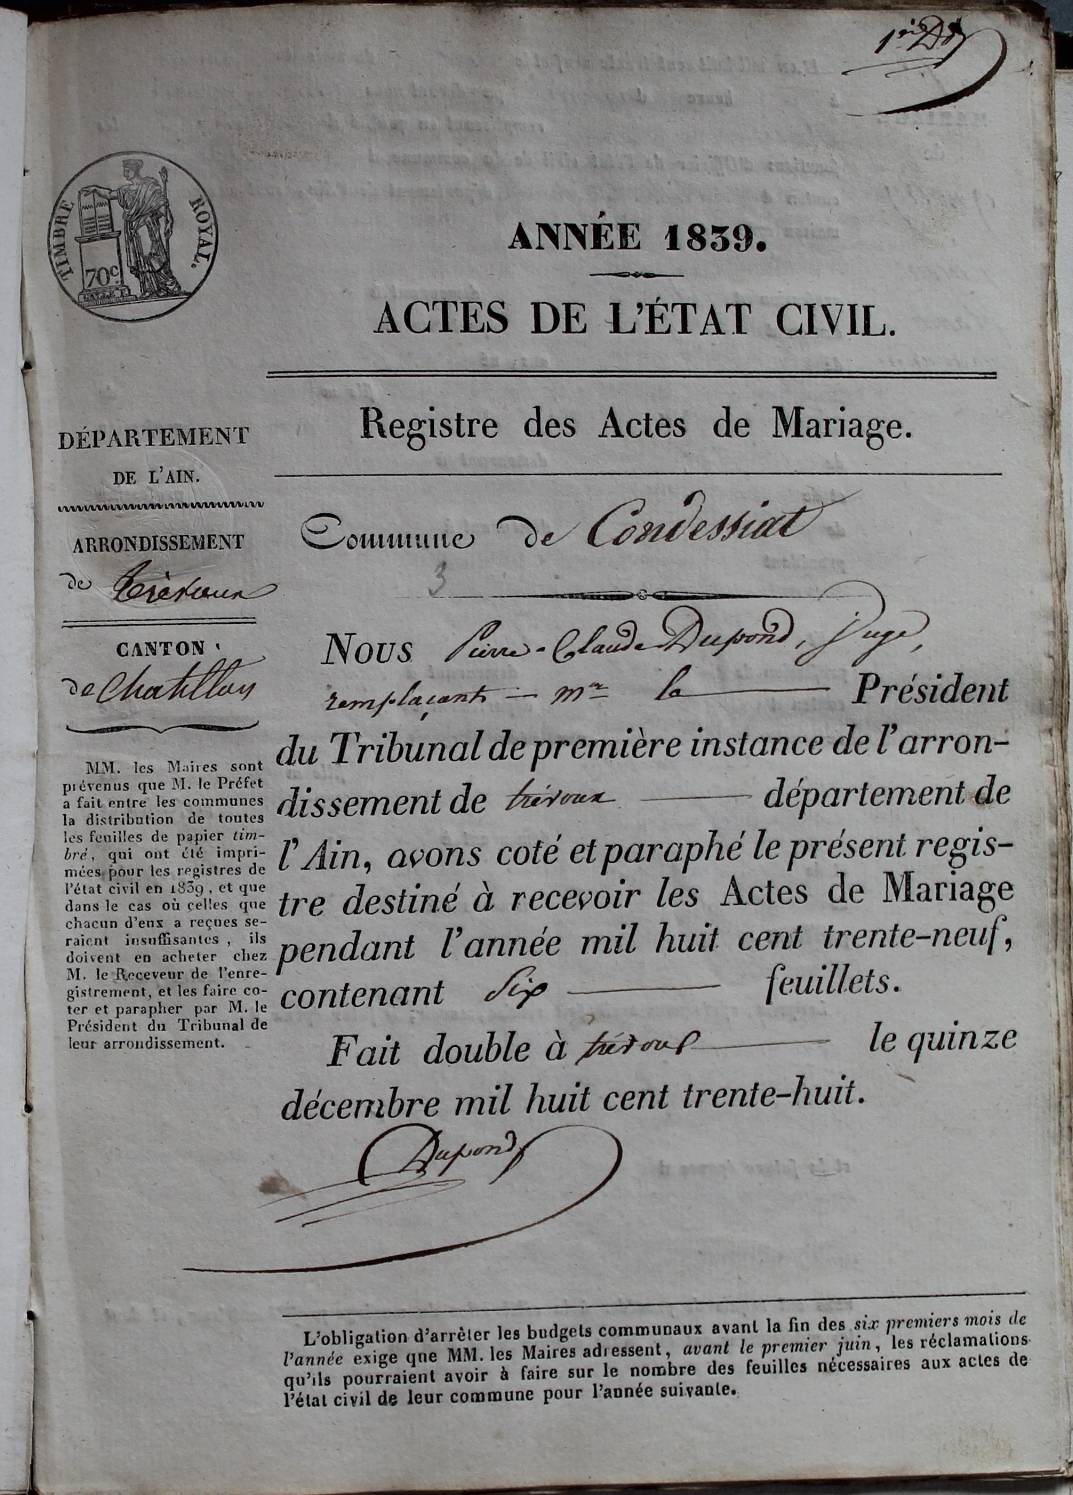 1er Dd
TIMBRE ROYAL.
70c.
ANNÉE 1839.
ACTES DE L'ÉTAT CIVIL.
Registre des Actes de Mariage.
DÉPARTEMENT
DE L'AIN.
ARRONDISSEMENT
de trévoux
CANTON
de Chatillon
MM. les Maires sont
prévenus que M. le Préfet
a fait entre les communes
la distribution de toutes
les feuilles de papier tim-
bré, qui ont été impri-
mées pour les registres de
l'état civil en 1839, et que
dans le cas où celles que
chacun d'eux a reçues se-
raient insuffisantes, ils
doivent en acheter chez
M. le Receveur de l'enre-
gistrement, et les faire co-
ter et parapher par M. le
Président du Tribunal de
leur arrondissement.
Commune de Condessiat
3
Nous Pierre-Claude Dupond, juge,
remplaçant mr le Président
du Tribunal de première instance de l'arron-
dissement de trévoux département de
l'Ain, avons coté et paraphé le présent regis-
tre destiné à recevoir les Actes de Mariage
pendant l'année mil huit cent trente-neuf,
contenant six feuillets.
Fait double à trévoux le quinze
décembre mil huit cent trente-huit.
Dupond
L'obligation d'arrêter les budgets communaux avant la fin des six premiers mois de
l'année exige que MM. les Maires adressent, avant le premier juin, les réclamations
qu'ils pourraient avoir à faire sur le nombre des feuilles nécessaires aux actes de
l'état civil de leur commune pour l'année suivante.